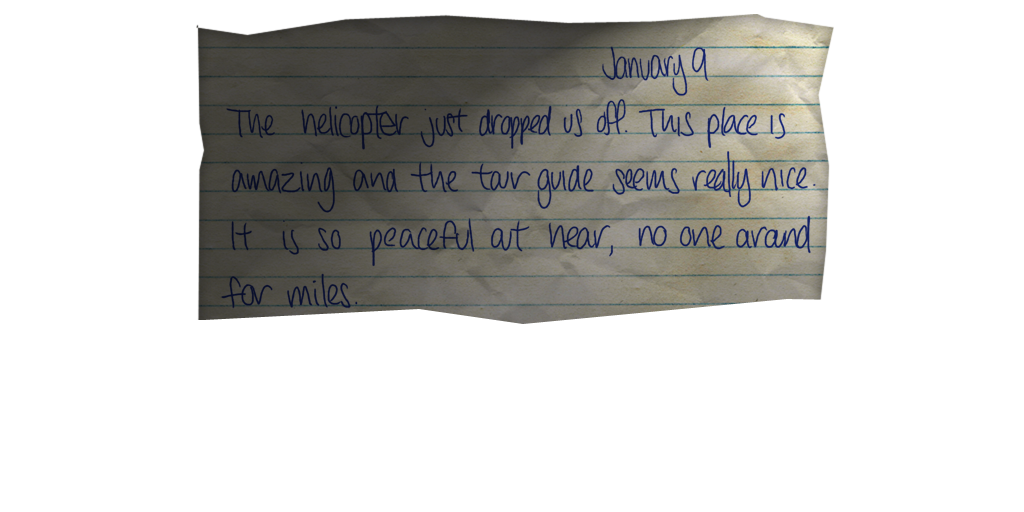 January 9
The helicopter just dropped us off. This place is
amazing and the tour guide seems really nice.
It is so peaceful out hear, no one around
for miles.